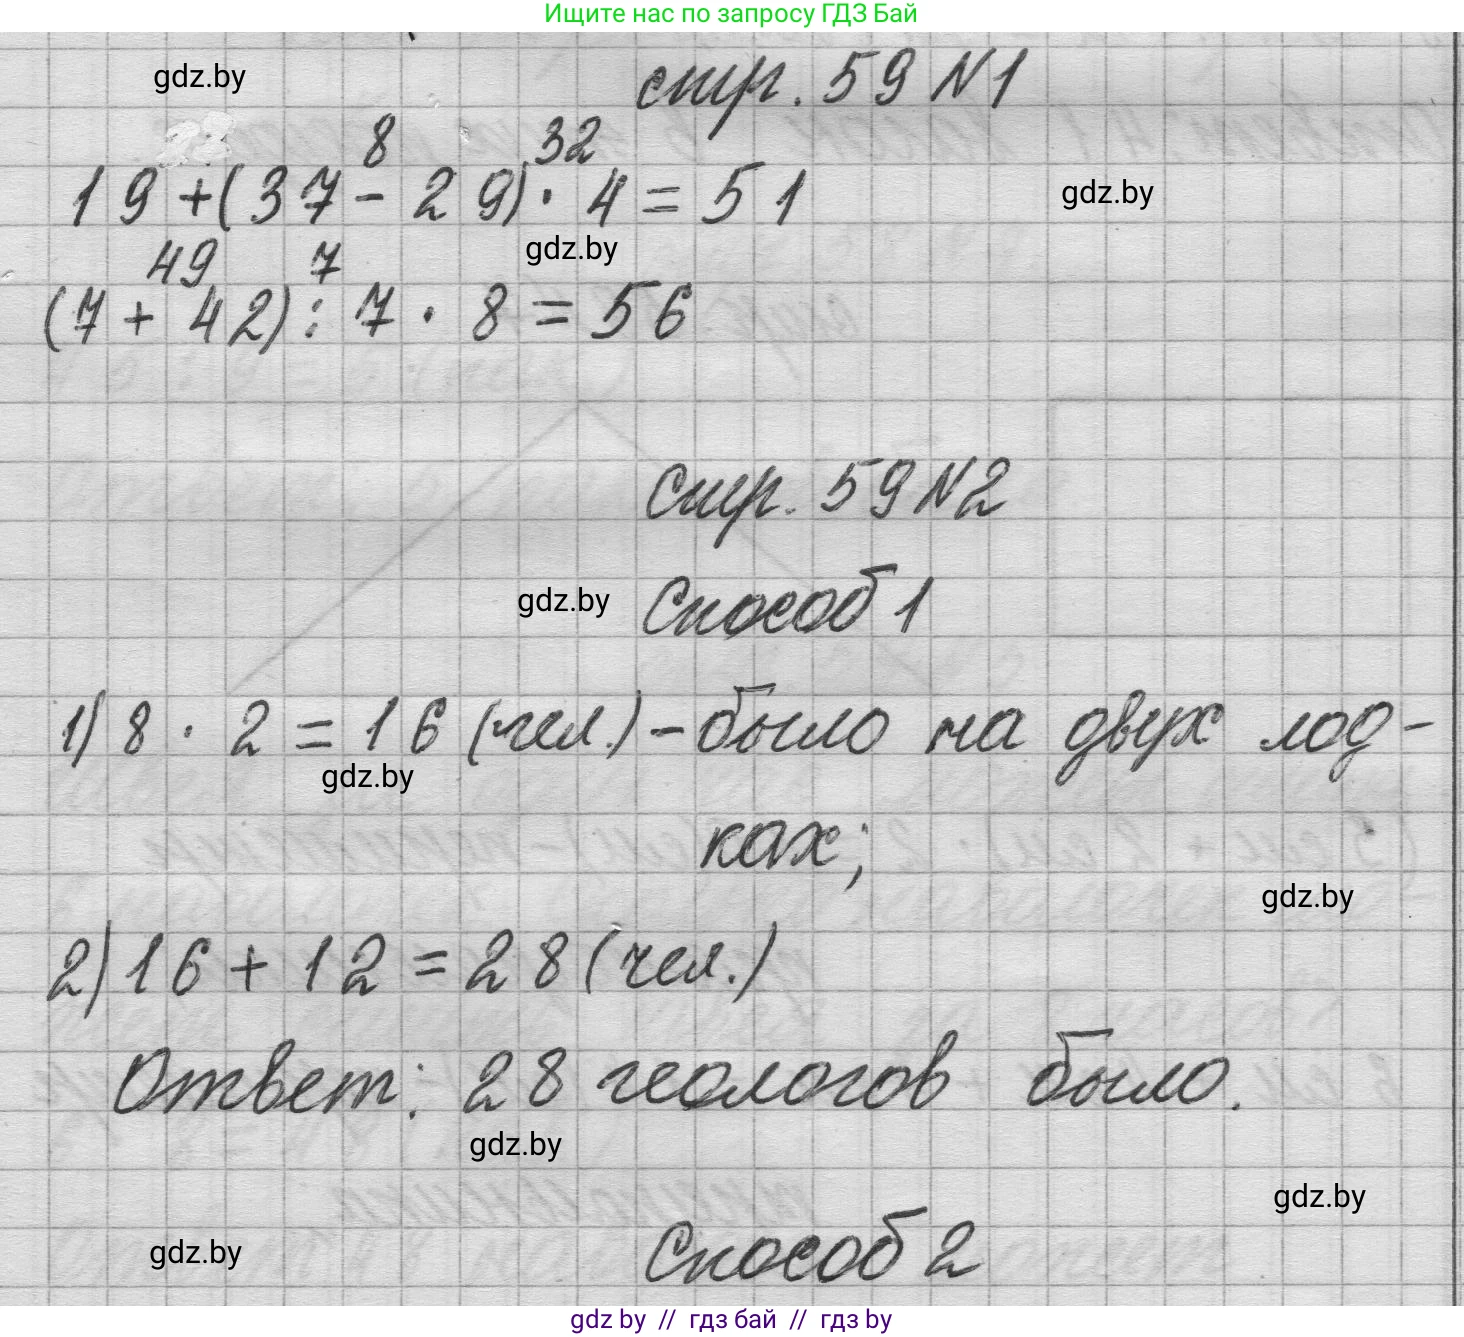 Ищите нас по запросу ГДЗ Бай
gdz.by
стр. 59 N1
8 32
19+(37-29)·4=51
gdz.by
gdz.by
49 7
(7+42):7·8=56
Стр. 59 N2
gdz.by
Способ 1
1) 8·2=16 (чел.)-было на двух лод-
gdz.by
ках;
gdz.by
2) 16+12=28 (чел.)
Ответ: 28 геологов было.
gdz.by
gdz.by
gdz.by
Способ 2
gdz by // гдз бай // гдз by